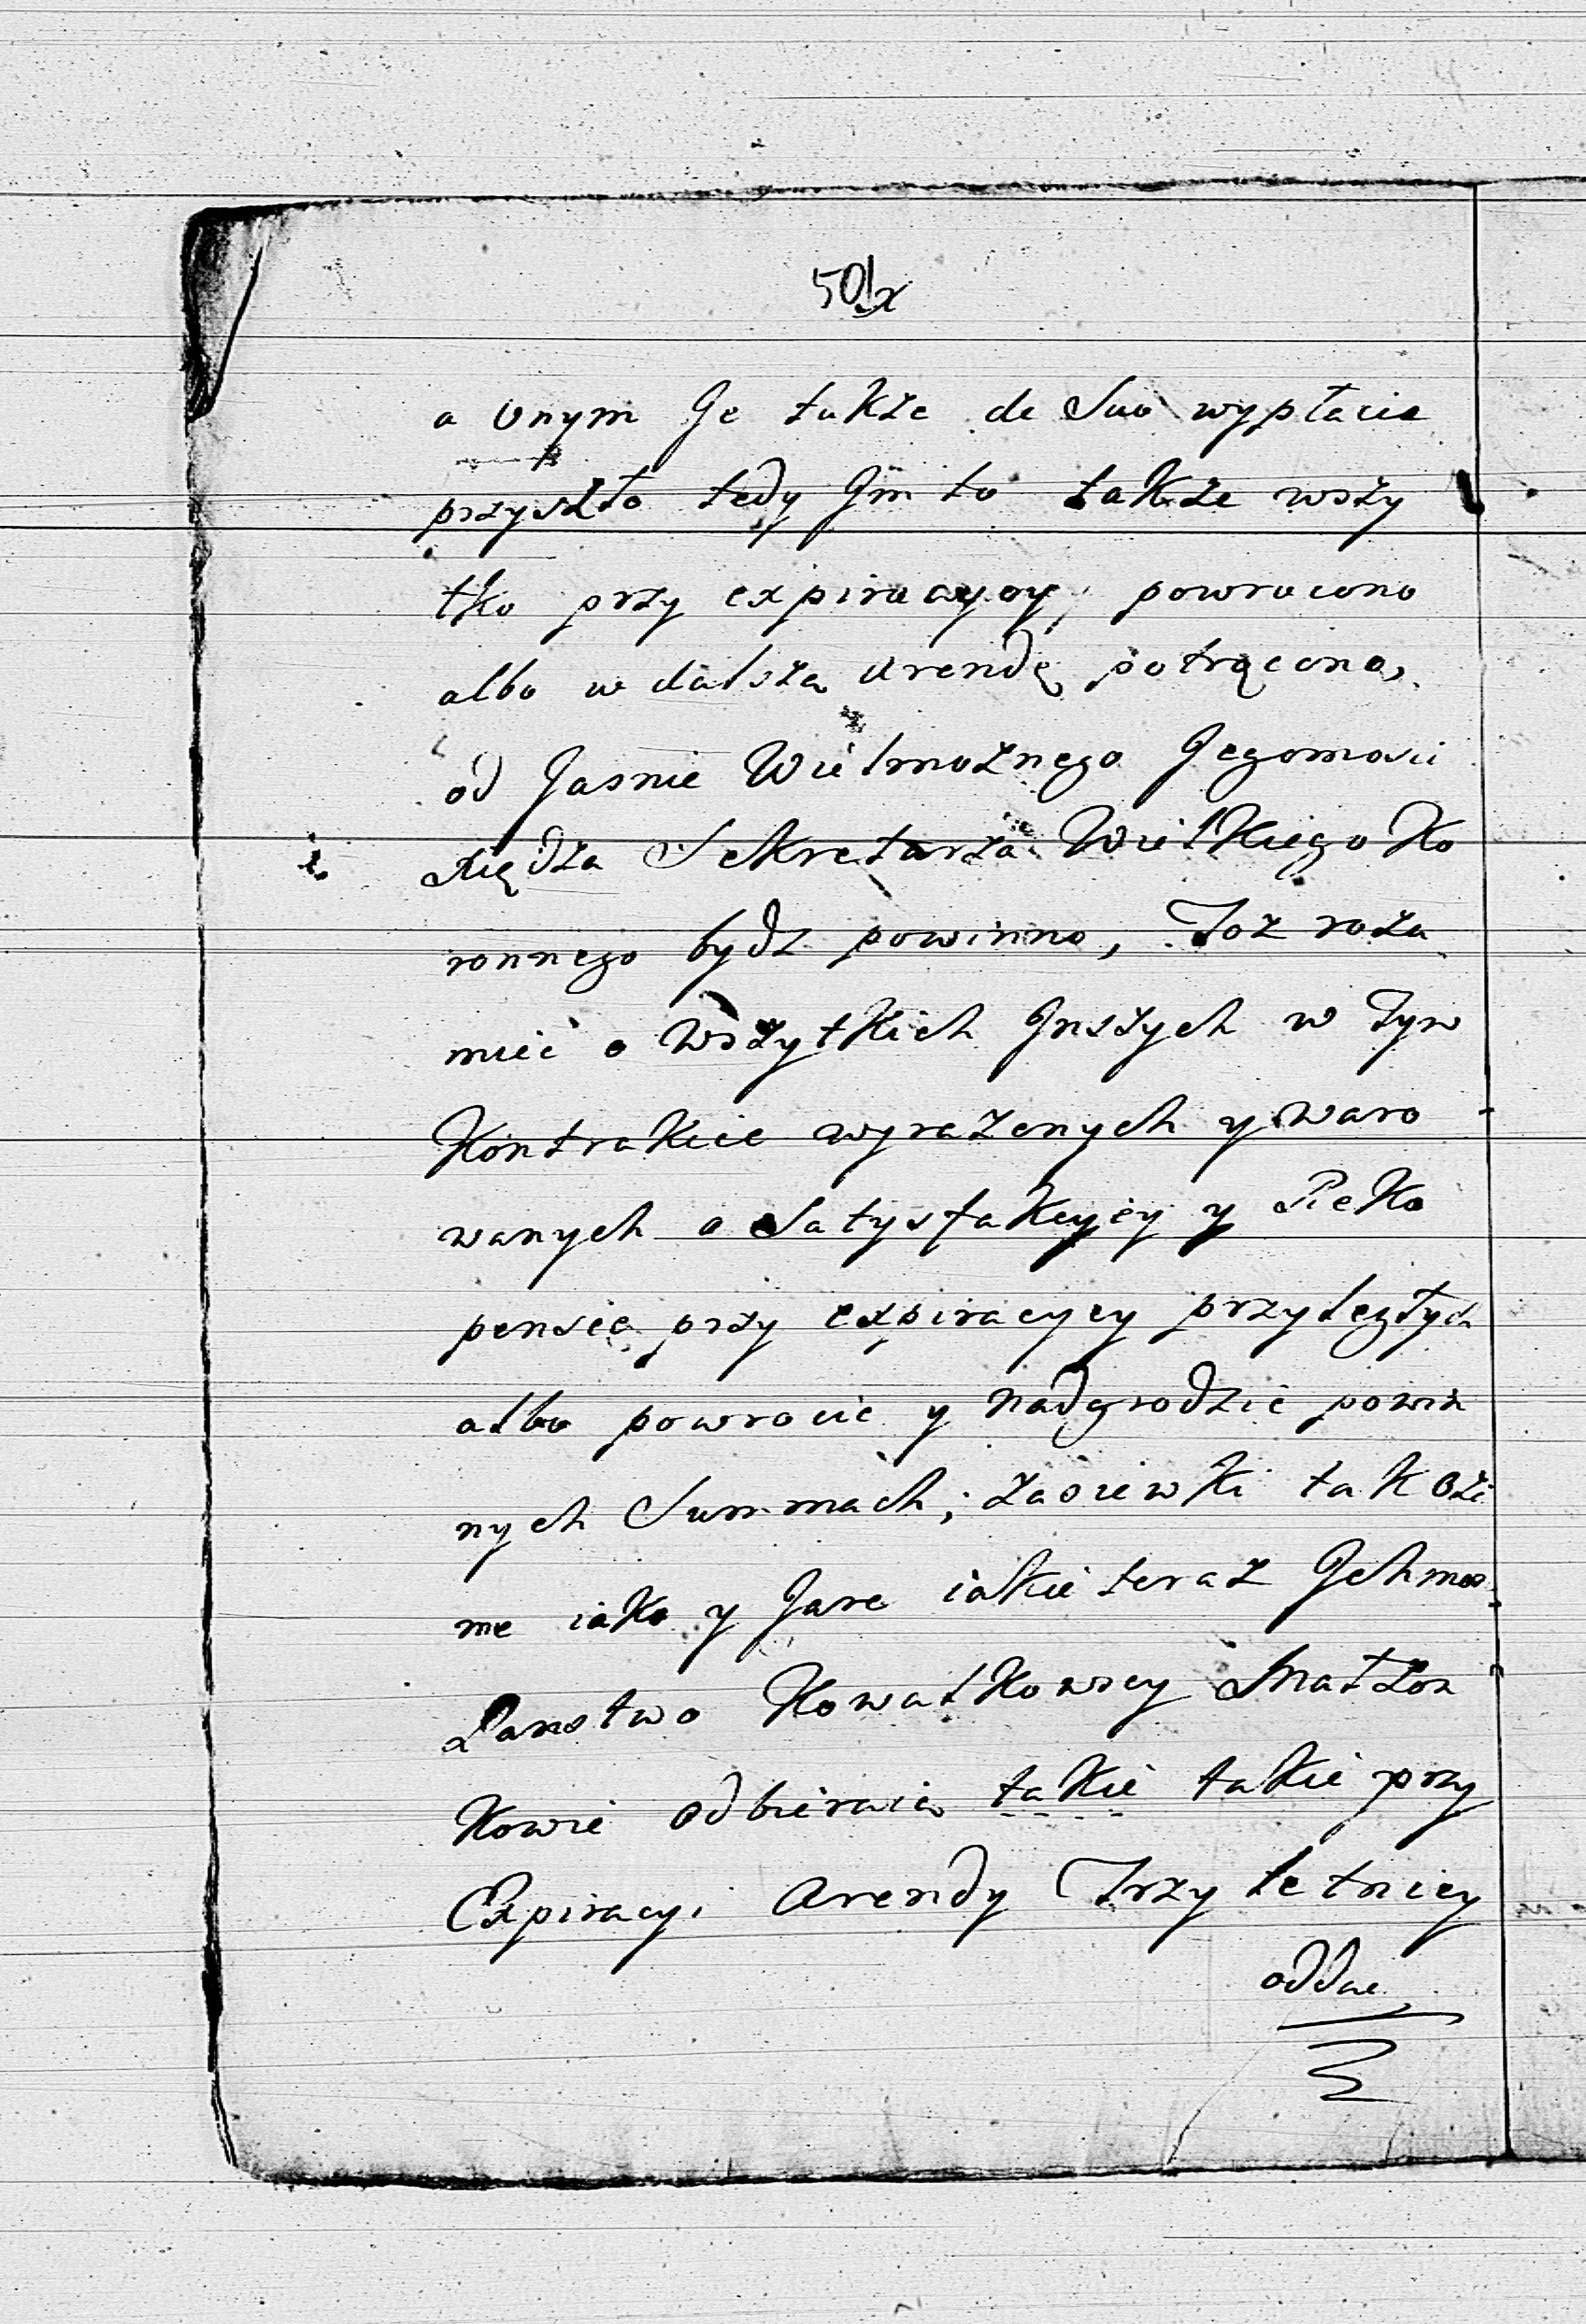 a onym Je także de Suo wypłacic
przyszło tedy Jm to także wszy
tko przy expiracyey powrocono
albo w dalszą Arendę potrącono,
od Jasnie Wielmożnego Jegomosci
Xiędza Sekretarza Wielkiego Ko
ronnego bydz powinno, Toż rozu
mieć o wszytkich Jnszych w Tym
Kontrakcie wyrazonych y waro
wanych o Satysfakcyey y Reko
pensie przy expiracyey przyległych
albo powrocic y nadgrodzic powin
nych Summach; Zasiewki tak Ozi
me iako y Jare iakie teraz Jchmos
Panstwo Kowalkowscy Małżon
kowie odbieraią takie takie przy
Expiracyi Arendy Trzyletniey
oddac